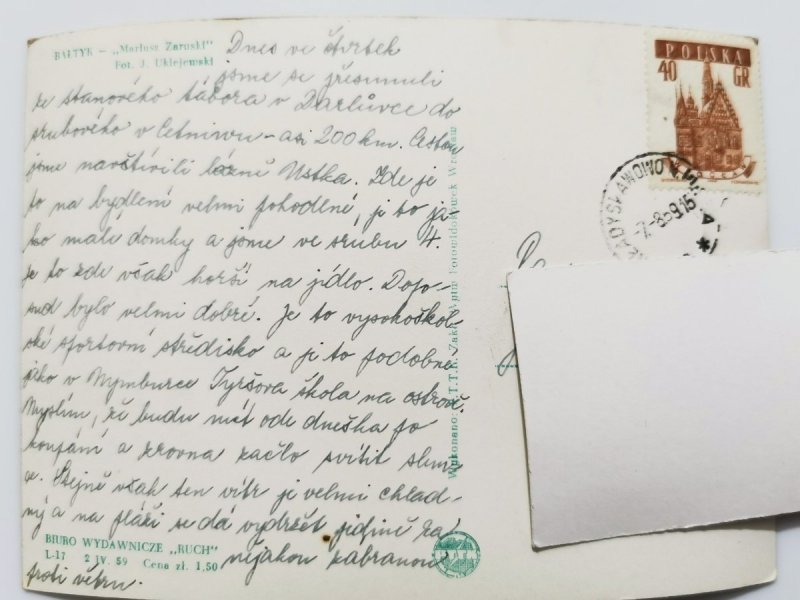 BAŁTYK — „Mariusz Zaruski"
Fot. J. Uklejewski
Dnes ve čtvrtek
jsme se přesunuli
ze stanového tábora v Darlůvce do
srubového v Cetniwu – asi 200 km. Cestou
jsme navštívili lázně Ustka. Zde je
to na bydlení velmi pohodlné, je to ja-
ko malé domky a jsme ve srubu 4.
Je to zde však horší na jídlo. Dopo-
sud bylo velmi dobré. Je to vysokoškol-
ské sportovní středisko a je to podobné
jako v Nymburce Tyršova škola na ostrově.
Myslím, že budu mít ode dneška po
koupání a zrovna začlo svítit slun-
ce. Stejně však ten vítr je velmi chlad-
ný a na pláži se dá vydržet jedině za
nějakou zabranou
proti větru.
BIURO WYDAWNICZE „RUCH"
L-17 2 IV. 59 Cena zł. 1,50
Wykonano
Zakł.
Fotowidokówek Wrocław
POLSKA
40 GR
WROCŁAW
WŁADYSŁAWOWO
-7.-8.59.15